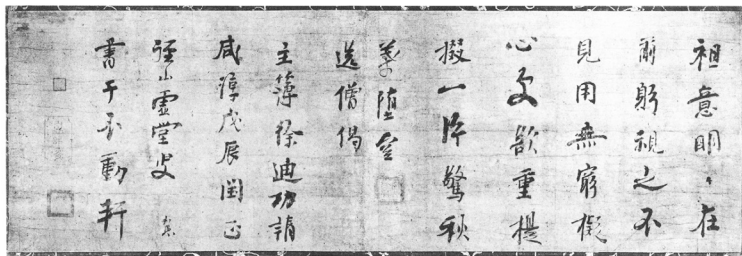 祖意明〻在
前躬視之不
見用無窮擬
心更欲重提
掇一片驚秋
葉墮空
送僧偈
主簿徐迪功請
咸淳戊辰閏正
徑山虛堂叟
書于不動軒